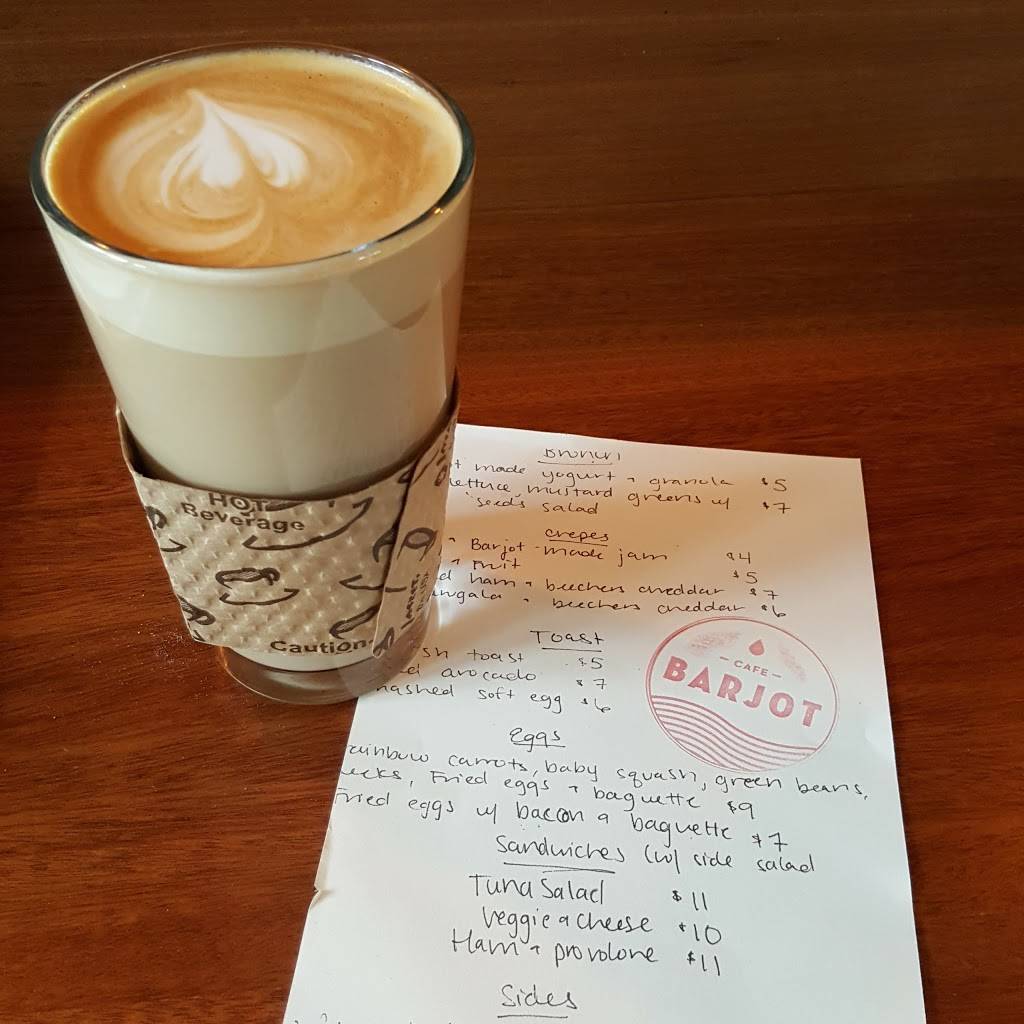 HOT
Beverage
Caution
made yogurt + granola $5
lettuce, mustard greens w/ $7
seeds salad
Crepes
+ Barjot-made jam $4
+ fruit $5
ham + beechers cheddar $7
+ beechers cheddar $6
Toast
toast $5
avocado $7
mashed soft egg $6
CAFE
BARJOT
Eggs
rainbow carrots, baby squash, green beans,
Fried eggs + baguette $9
Fried eggs w/ bacon + baguette $7
Sandwiches (w/ side salad
Tuna Salad $11
Veggie + Cheese $10
Ham + provolone $11
Sides